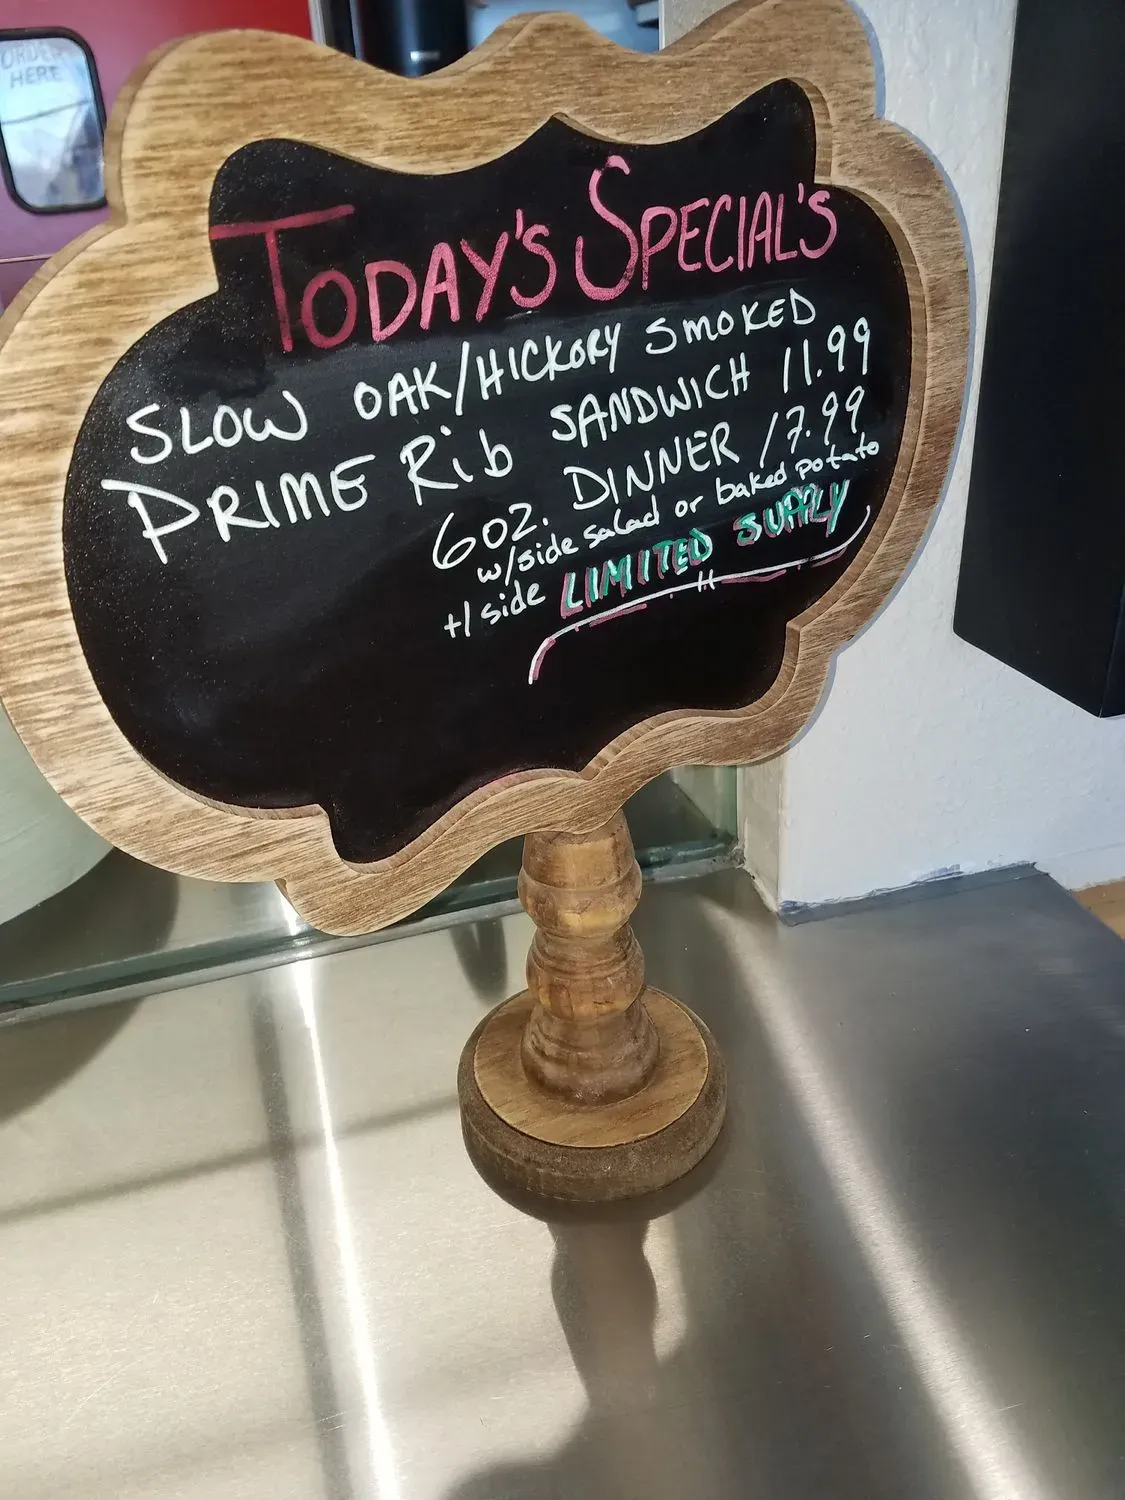 ORDER
HERE
TODAY'S SPECIAL'S
SLOW OAK/HICKORY SMOKED
PRIME Rib SANDWICH 11.99
6oz. DINNER 17.99
w/side salad or baked potato
+1 side LIMITED SUPPLY